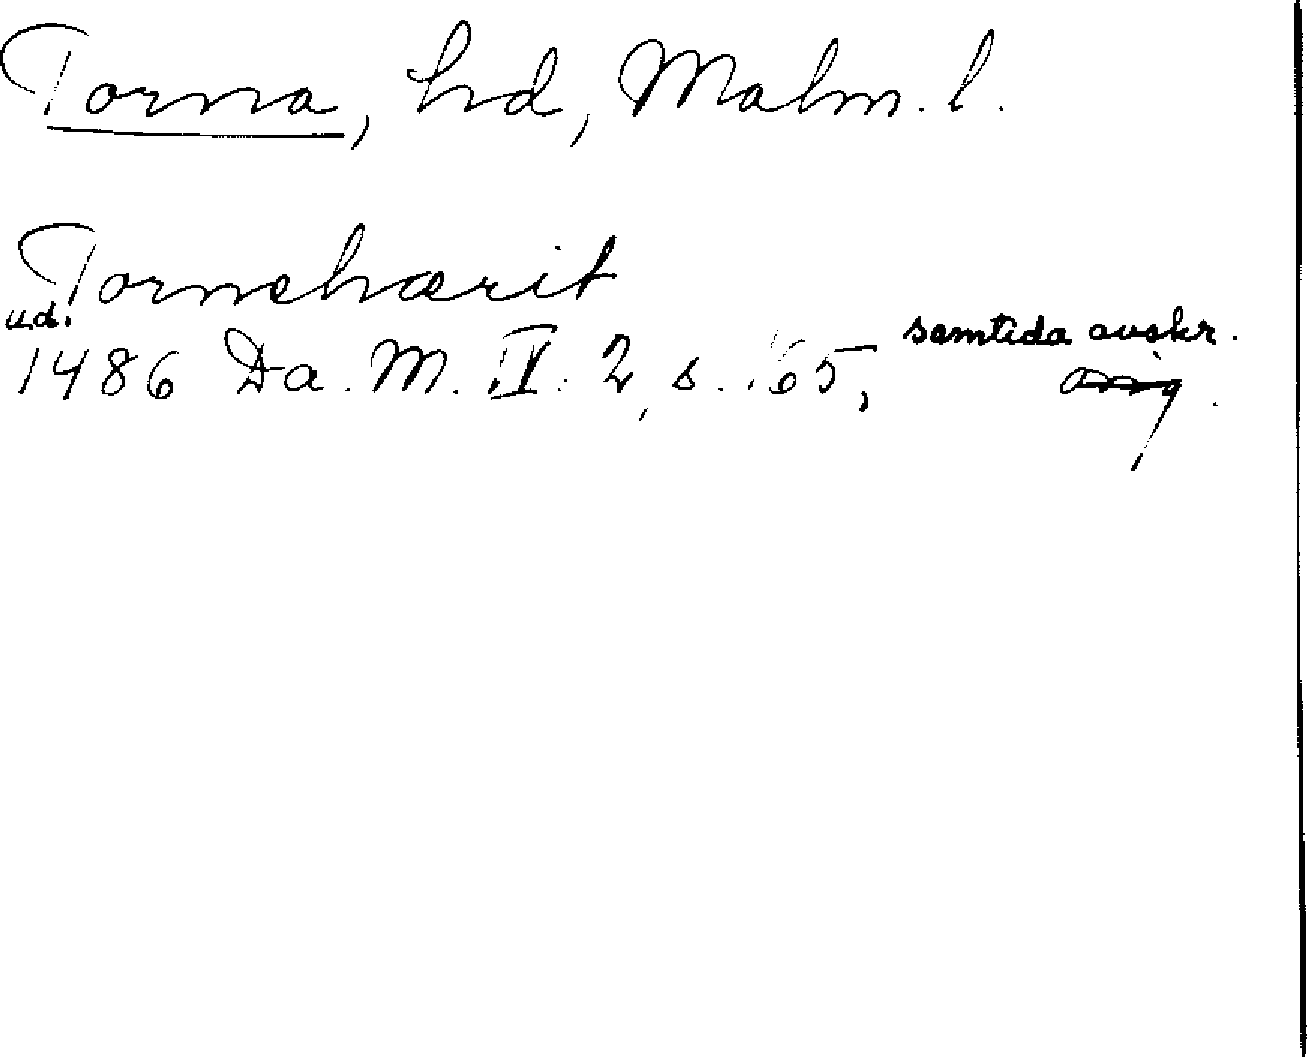 Torna, hd, Malm. l.
Tornehærit
u.d.
1486 Da. M. II. 2, s. 65, samtida avskr.
orig.